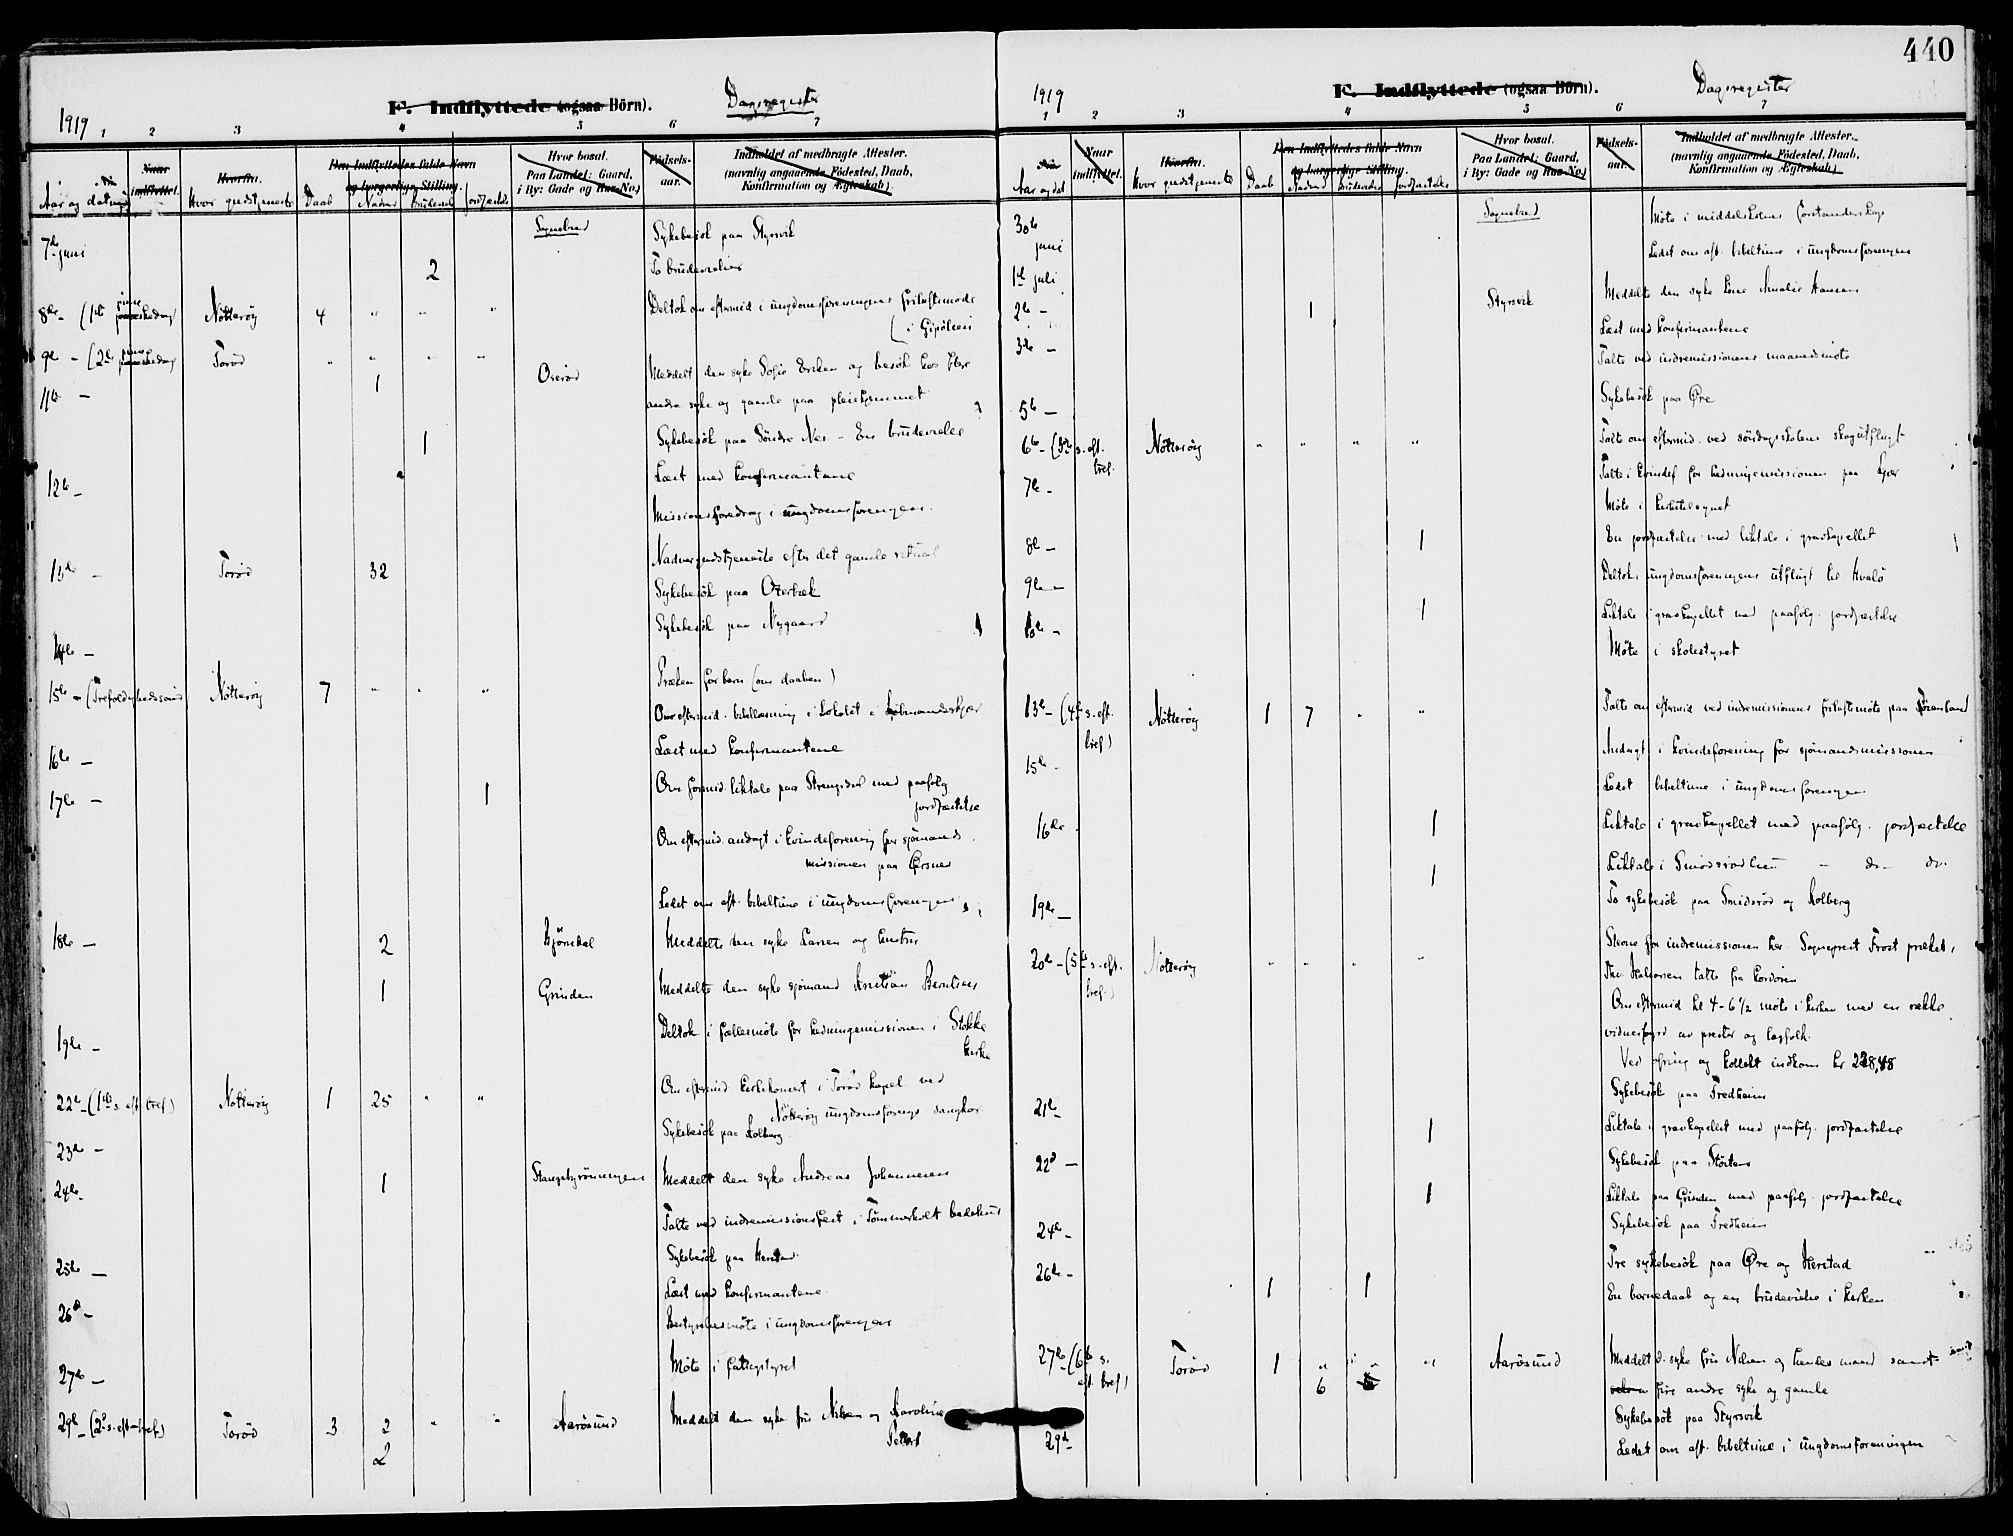 440
F. Indflyttede (ogsaa Börn).
Dagsregister
1919
1 2 3 4 5 6 7
Aar og datum
Naar indflyttet.
Hvorfra.
Hvor gudstjeneste
Den Indflyttedes fulde Navn
og borgerlige Stilling.
Daab Nadverd Brudevielse Jordfæstelse
Hvor bosat.
Paa Landet: Gaard,
i By: Gade og Hus-No.
Födselsaar.
Indholdet af medbragte Attester.
(navnlig angaaende Födested, Daab,
Konfirmation og Ægteskab).
Sognebud
7de juni Sykebesök paa Styrsvik
2 To brudevielser
8de - (1ste pinsedag) Nötteröy 4 " " " Deltok om eftermid i ungdomsforeningens friluftsmöde
9de - (2den pinsedag) Torød " " " "
11te - 1 Oserød Meddelt den syke Sofie Eriksen og besök hos flere
andre syke og gamle paa pleiehjemmet
1 Sykebesök paa Söndre Nes - En brudevielse
12te - Læst med konfirmantene
Missionsforedrag i ungdomsforeningen.
13de - Torød 32 Nadvergudstjeneste efter det gamle ritual
Sykebesök paa Oterbæk
Sykebesök paa Nygaard
14de -
15de - (Trefoldighedssönd) Nötteröy 7 " " " Præken for barn (om daaben)
Om eftermid. bibellæsning i lokalet i
16de - Læst med konfirmantene
17de - 1 Om formid. liktale paa Strengsdal med paafølg
jordfæstelse
Om eftermid. andagt i kvindeforening for sjömands
missionen paa
Ledet om aft. bibeltime i ungdomsforeningen
18de - 2 Meddelte den syke Larsen og hustru
1 Grinden Meddelte den syke sjömand Kristian Berntsen
19de - Deltok i fællesmöte for hedningemissionen i Stokke
kirke
22de - (1ste s. eft. tref.) Nötteröy 1 25 " " Om eftermid kirkekonsert i Torød kapel ved
Nötteröy ungdomsforenings sangkor
23de - Sykebesök paa Kolberg
24de - 1 Meddelt den syke Andreas Johannesen
Talte ved indremissionsfest i Tömmerholt bedehus
25de - Sykebesök paa Herstad
26de - Læst med konfirmantene
Bestyrelsesmöte i ungdomsforeningen
27de - Möte i fattigstyret
29de - (2den s. eft. tref.) Torød 3 2 " " Aarøsund Meddelt den syke fru Nilsen og Karoline
2
1919
F. Indflyttede (ogsaa Börn).
Dagsregister
1 2 3 4 5 6 7
Aar og dat
Naar indflyttet.
Hvorfra.
Hvor gudstjeneste
Den Indflyttedes fulde Navn
og borgerlige Stilling.
Daab Nadverd Brudevielse Jordfæstelse
Hvor bosat.
Paa Landet: Gaard,
i By: Gade og Hus-No.
Födselsaar.
Indholdet af medbragte Attester.
(navnlig angaaende Födested, Daab,
Konfirmation og Ægteskab).
Sognebud
30te juni Möte i middelskolens forstanderskap
Ledet om aft. bibeltime i ungdomsforeningen
1ste juli
2de - 1 Styrsvik Meddelte den syke Amalie Hansen
Læst med konfirmantene
3die - Talte ved indremissionens maanedsmöte
5te - Sykebesök paa Øre
6te - (3die s. eft. tref. Nötteröy " " " " Talte om eftermid. ved söndagsskolens skogutflugt
7de - Talte i kvindef for hedningemissionen paa Kjær
Möte i kirketilsynet
8de - 1 En jordfæstelse med liktale i gravkapellet
9de - Deltok i ungdomsforeningens utflugt til Hvalö
10de - 1 Liktale i gravkapellet med paafølg. jordfæstelse
Möte i skolestyret
13de - (4de s. eft. tref.) Nötteröy 1 7 " " Talte om eftermid ved indremissionens friluftsmöte paa
15de - Andagt i kvindeforening for sjömandsmissionen
Ledet bibeltime i ungdomsforeningen
16de - 1 Liktale i gravkapellet med paafølg. jordfæstelse
1 Liktale i - do - do.
19de - To sykebesök paa Smidsrød og Kolberg
20de - (5te s. eft. tref.) Nötteröy " " " " Stevne for indremissionen her. Sogneprest Frost prækte,
talte fra kordören
Om eftermid kl 4-6 1/2 möte i kirken med en række
vidnesbyrd av prester og lægfolk.
Ved ofring og kollekt indkom kr 228,48
21de - Sykebesök paa Fredheim
1 Liktale i gravkapellet med paafølg. jordfæstelse
22de - Sykebesök paa
1 Liktale paa Grinden med paafølg. jordfæstelse
24de - Sykebesök paa Fredheim
26de - Tre sykebesök paa Øre og Herstad
1 1 En barnedaab og en brudevielse i kirken
27de - (6te s. eft. tref.) Torød 1 " " " Aarøsund Meddelt d. syke fru Nilsen og hendes mand samt
6 fire andre syke og gamle
Sykebesök paa Styrsvik
29de - Ledet om aft. bibeltime i ungdomsforeningen